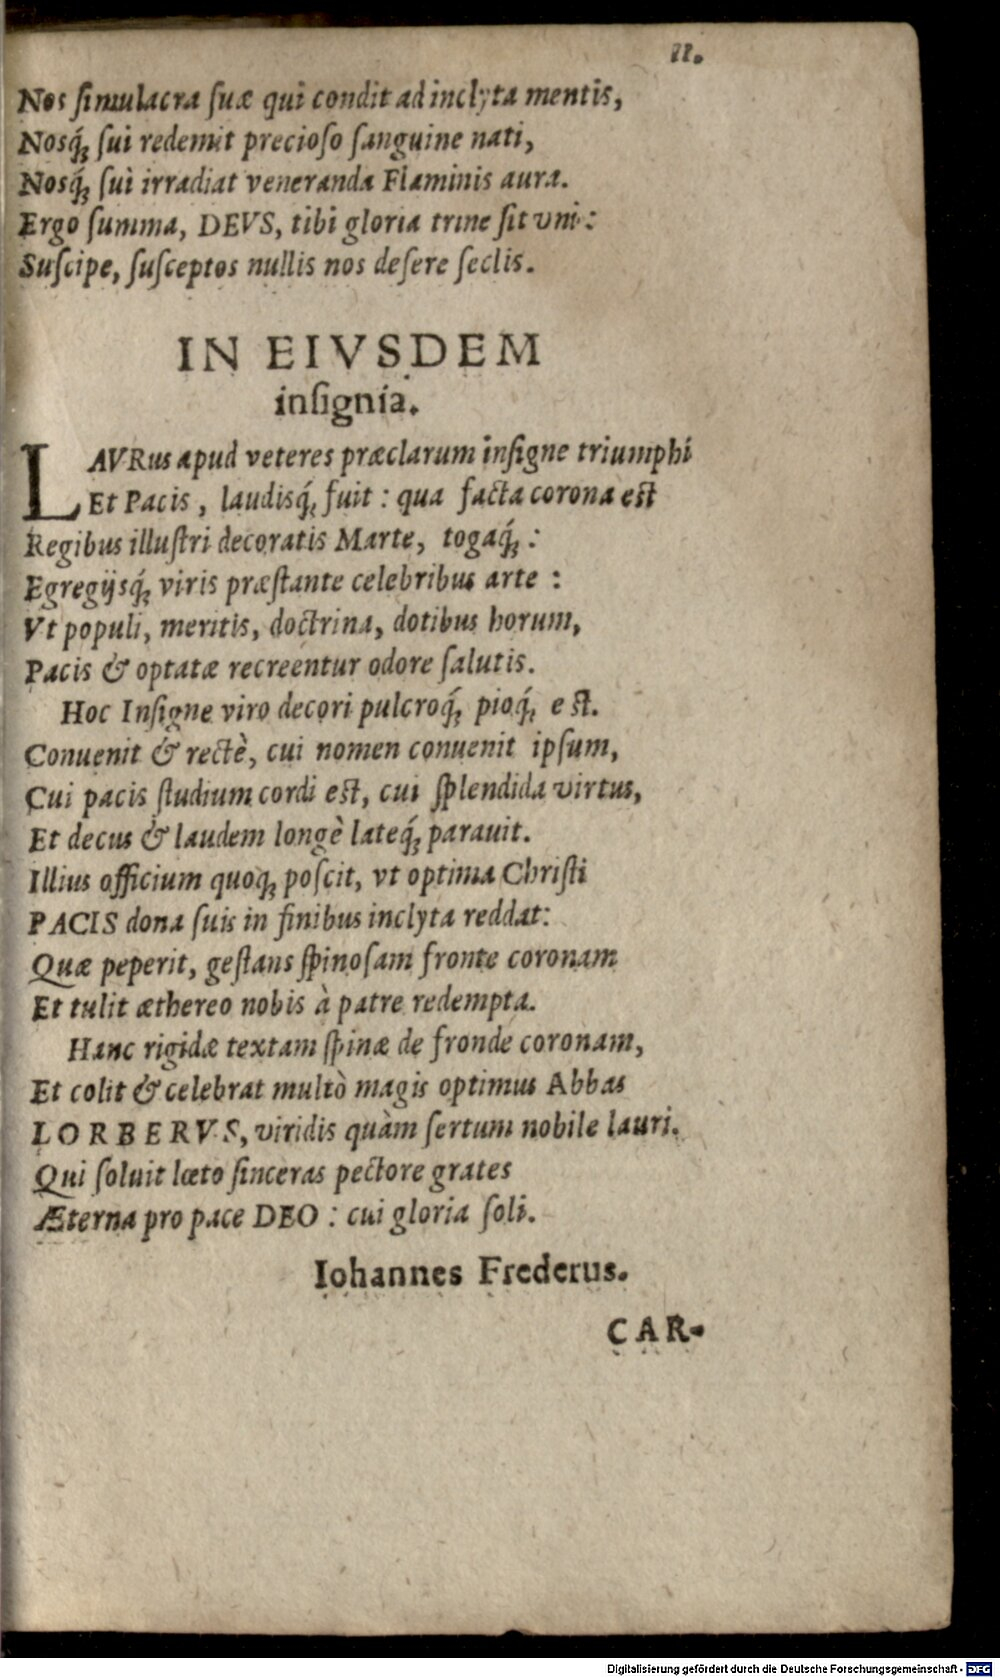 11.
Nos ſimulacra ſuæ qui condit ad inclyta mentis,
Nosq́ꝫ ſui redemit precioſo ſanguine nati,
Nosq́ꝫ ſui irradiat veneranda Flaminis aura.
Ergo ſumma, DEVS, tibi gloria trine ſit vni:
Suſcipe, ſuſceptos nullis nos deſere ſeclis.
IN EIVSDEM
inſignia.
LAVRus apud veteres præclarum inſigne triumphi
Et Pacis, laudisq́ꝫ fuit: qua facta corona est
Regibus illuſtri decoratis Marte, togaq́ꝫ:
Egregijsq́ꝫ viris præſtante celebribus arte:
Vt populi, meritis, doctrina, dotibus horum,
Pacis & optatæ recreentur odore ſalutis.
Hoc Inſigne viro decori pulcroq́ꝫ pioq́ꝫ est.
Conuenit & rectè, cui nomen conuenit ipſum,
Cui pacis ſtudium cordi est, cui ſplendida virtus,
Et decus & laudem longè lateq́ꝫ parauit.
Illius officium quoqꝫ poſcit, vt optima Chriſti
PACIS dona ſuis in finibus inclyta reddat:
Quæ peperit, geſtans ſpinoſam fronte coronam
Et tulit æthereo nobis à patre redempta.
Hanc rigidæ textam ſpinæ de fronde coronam,
Et colit & celebrat multò magis optimus Abbas
LORBERVS, viridis quàm ſertum nobile lauri.
Qui ſoluit lœto ſinceras pectore grates
Æterna pro pace DEO: cui gloria ſoli.
Iohannes Frederus.
CAR-
Digitalisierung gefördert durch die Deutsche Forschungsgemeinschaft - DFG